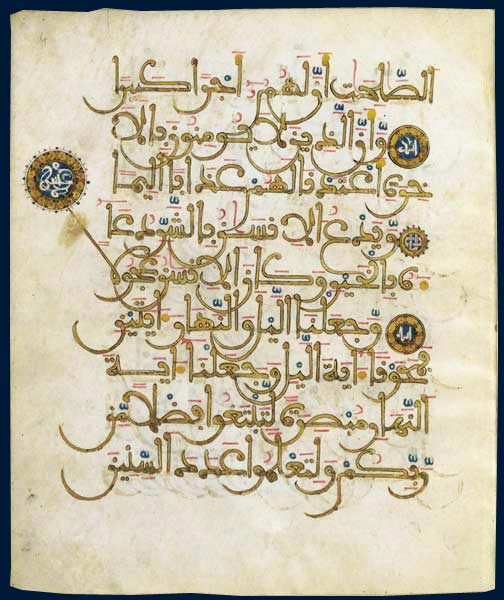 الصّلحت أنّ لهم أجرا كبيرا
وّأنّ الّذين لا يؤمنون بالا
خرة أعتدنا لهم عذابا أليما
وّيدع الانسن بالشّرّ دعا
ه بالخير وكان الانسن عجولا
وّجعلنا اليل والنّهار ايتين
فمحونا اية اليل وجعلنا اية
النّهار مبصرة لّتبتغوا فضلا مّن
رّبّكم ولتعلموا عدد السّنين